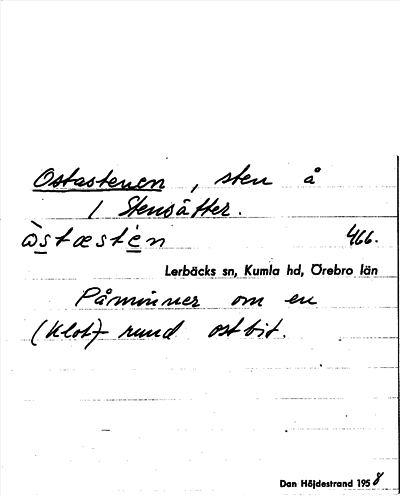 Ostastenen, sten å
1 Stensätter.
òstæstèn 466.
Lerbäcks sn, Kumla hd, Örebro län
Påminner om en
(klot)-rund ostbit.
Dan Höjdestrand 1958